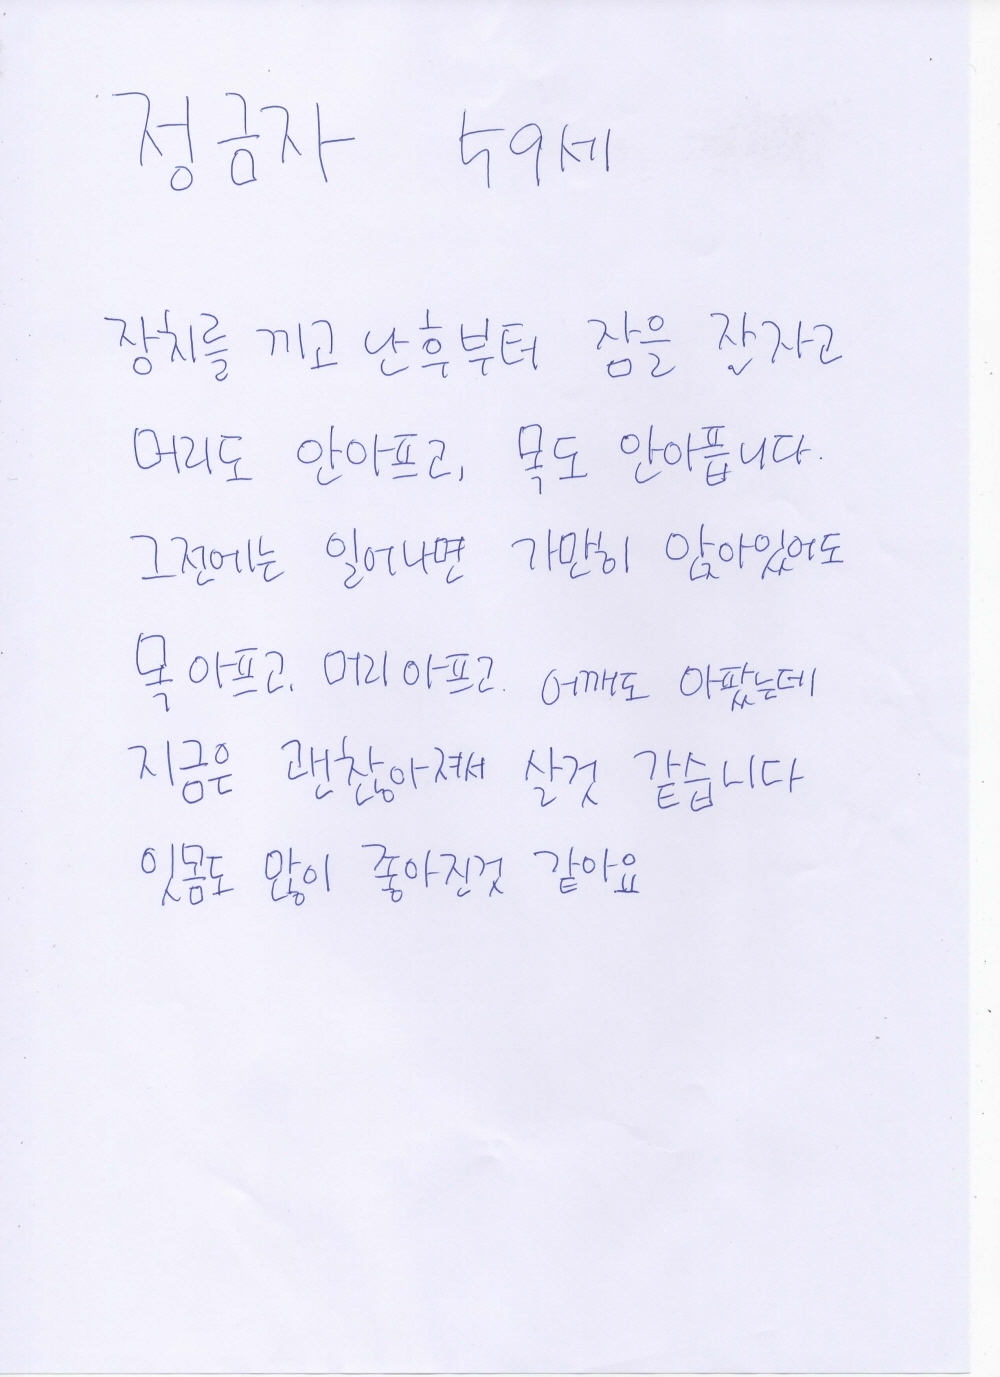 정금자 59세
장치를 끼고 난후부터 잠을 잘자고
머리도 안아프고, 목도 안아픕니다.
그전에는 일어나면 가만히 앉아있어도
목 아프고, 머리아프고. 어깨도 아팠는데
지금은 괜찮아져서 살것 같습니다
잇몸도 많이 좋아진것 같아요